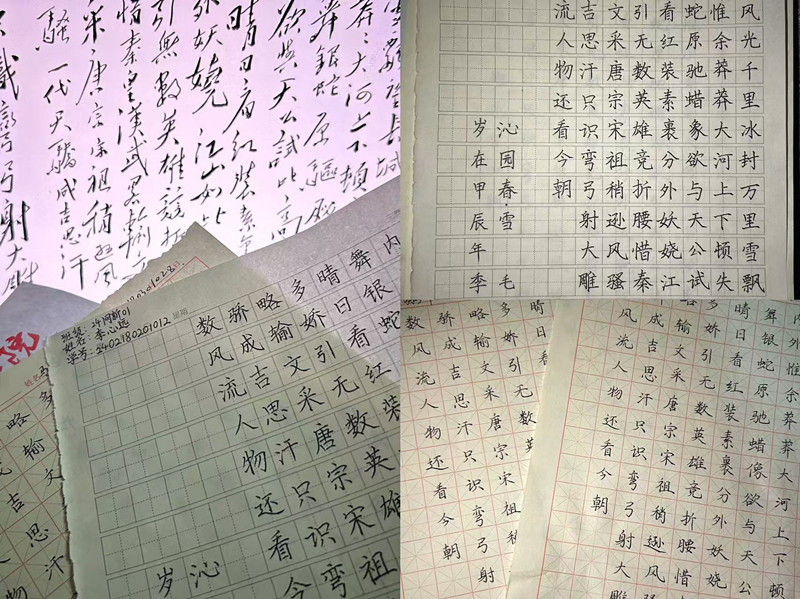 大河上下頓
舞銀蛇原驅
欲與天公試比高
晴日看紅裝素
外妖嬈江山如此
引無數英雄競折
惜秦皇漢武畧輸文
采唐宗宋祖稍遜風
騷一代天驕成吉思汗
識彎弓射大雕
风光千里冰封万里雪飘
惟余莽莽大河上下顿失
蛇原驰蜡象欲与天公试
看红装素裹分外妖娆江
引无数英雄竞折腰惜秦
文采唐宗宋祖稍逊风骚
吉思汗只识弯弓射大雕
流人物还看今朝
沁园春·雪毛
岁在甲辰年季
班级：24网新01
姓名：李心远
学号：2402180201012
星期
内
舞银蛇
晴日看红装
多娇引无数英雄
略输文采唐宗宋祖
骄成吉思汗只识弯
数风流人物还看今
沁
岁
多
略输文
吉思汗
多娇引无
略输文采唐宗宋祖
骄成吉思汗识弯弓射
数风流人物还看今朝
惟余莽莽大河上下顿
舞银蛇原驰蜡像欲与天公
晴日看红装素裹分外妖娆
娇引无数英雄竞折腰惜
输文采唐宗宋祖稍逊风骚
成吉思汗只识弯弓射大雕
风流人物还看今朝